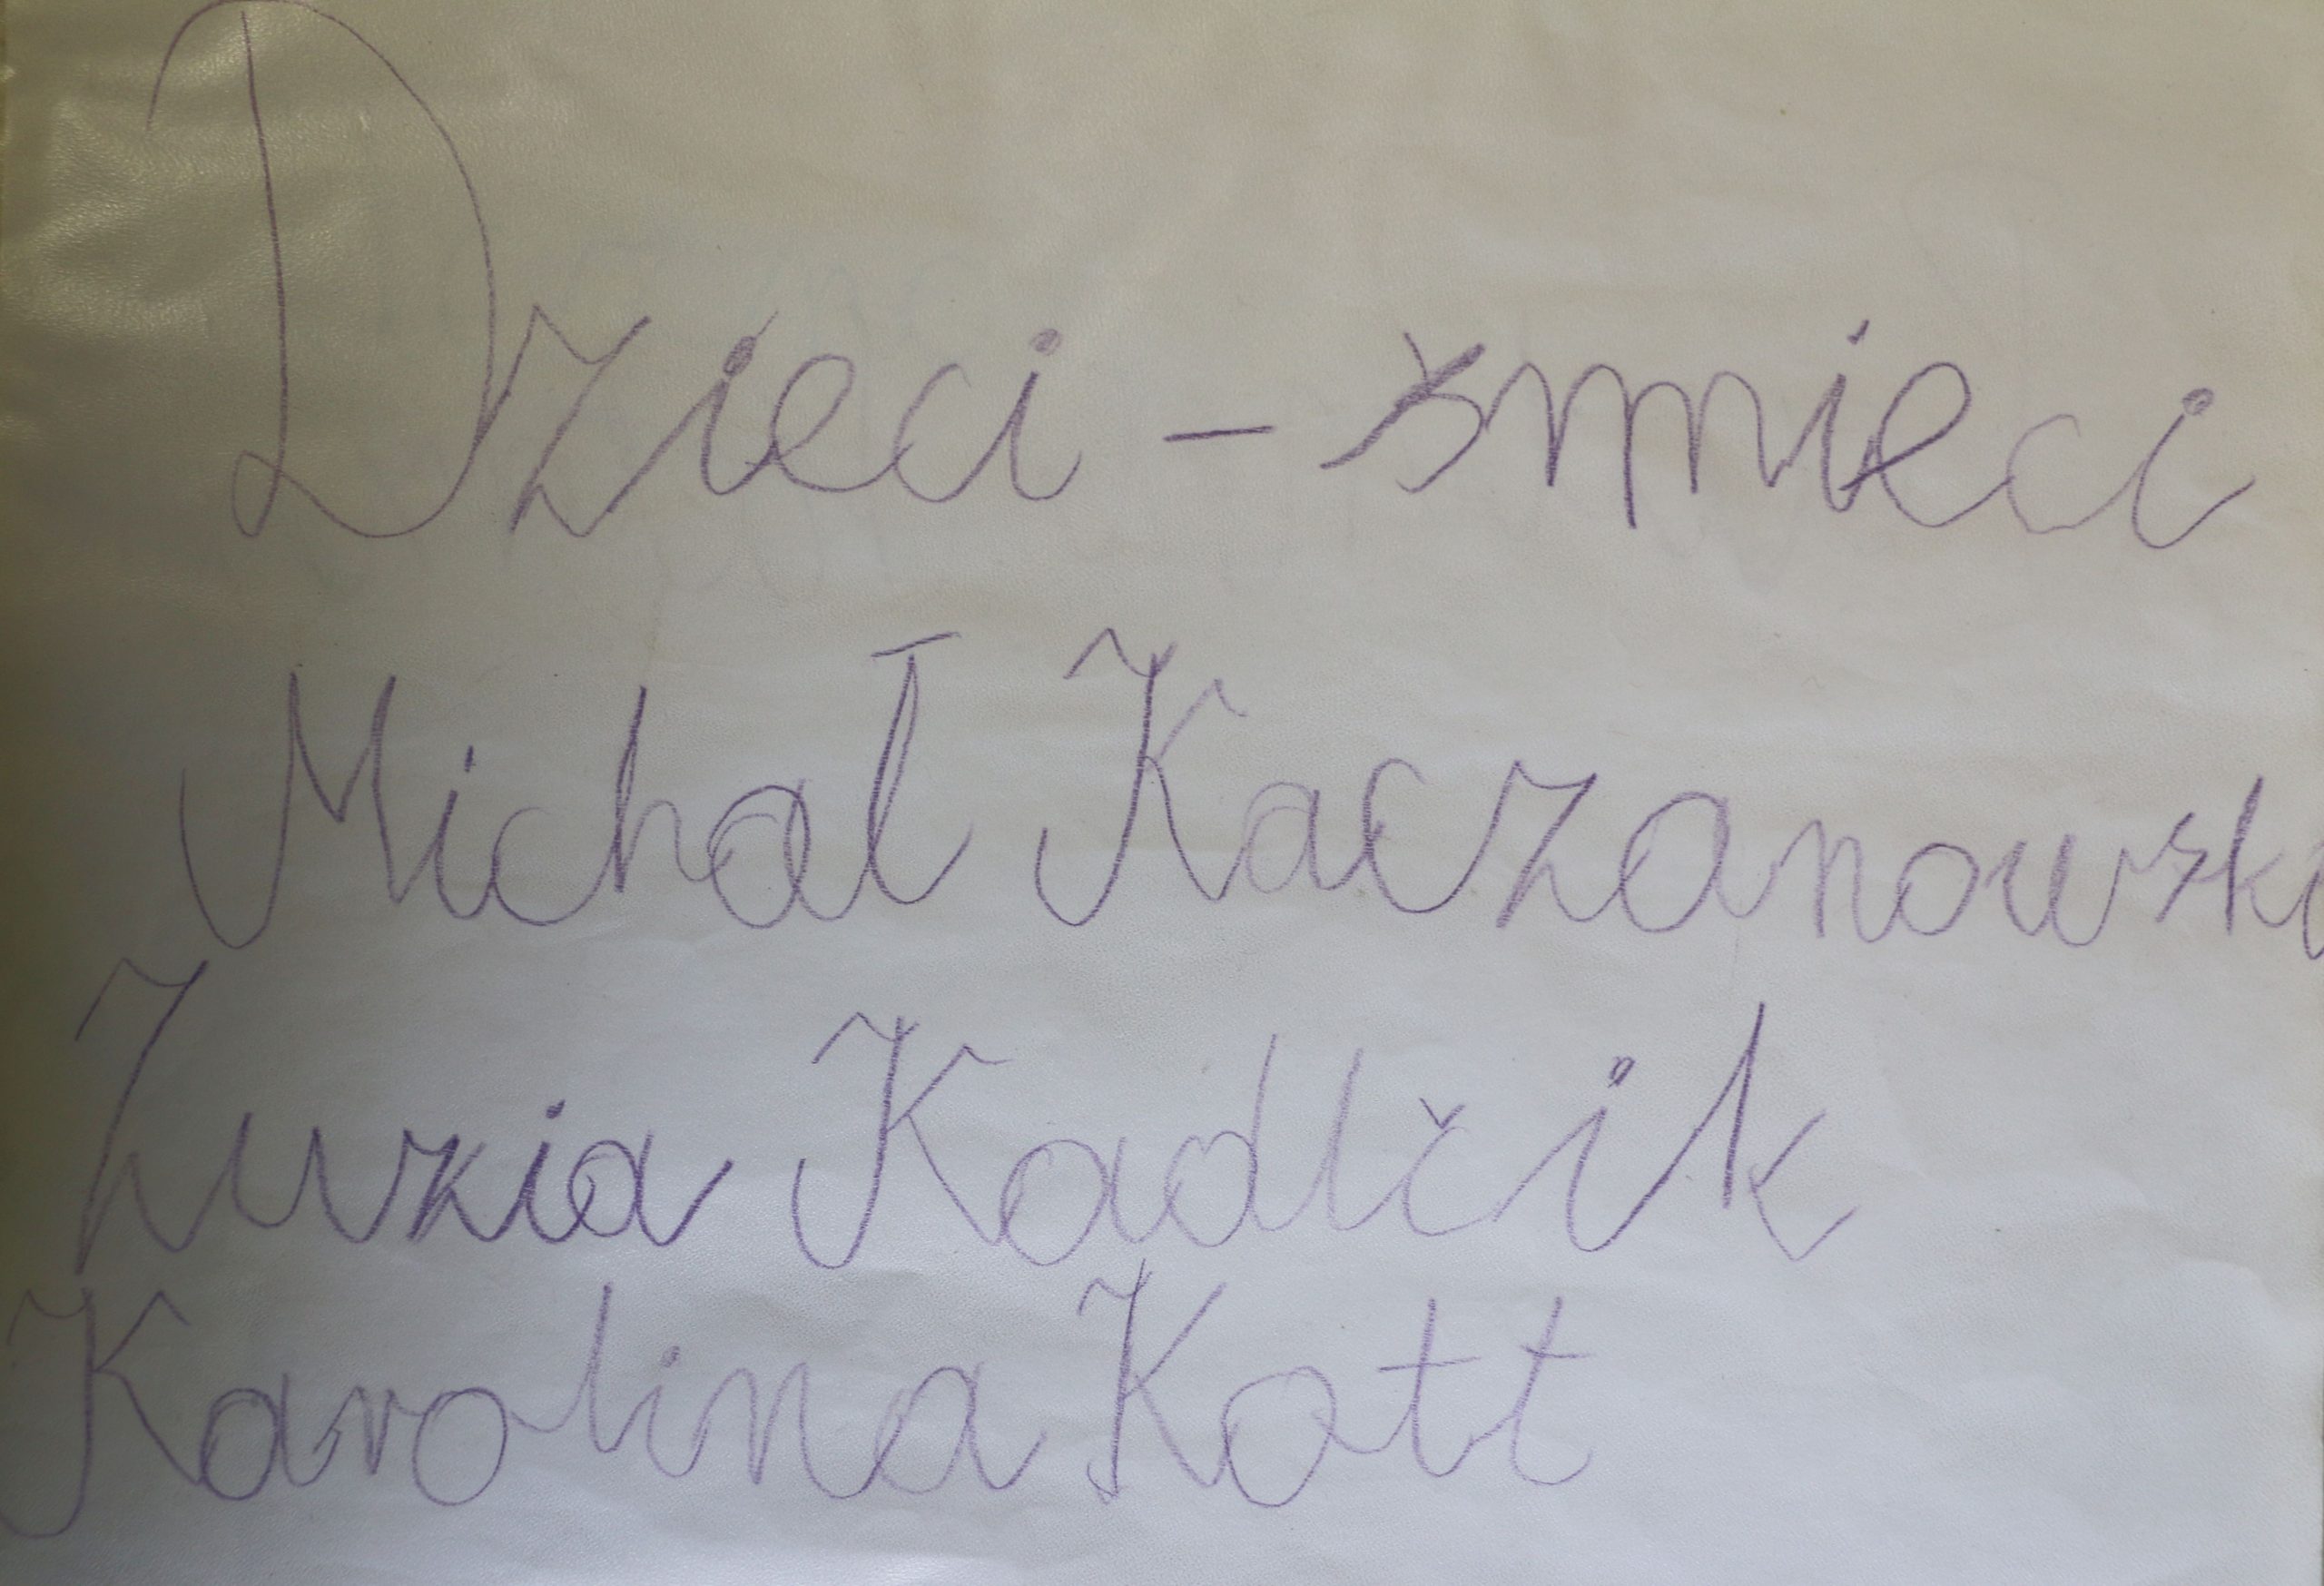 Dzieci - śmieci
Michał Kaczanowski
Zuzia Kadlčik
Karolina Kott